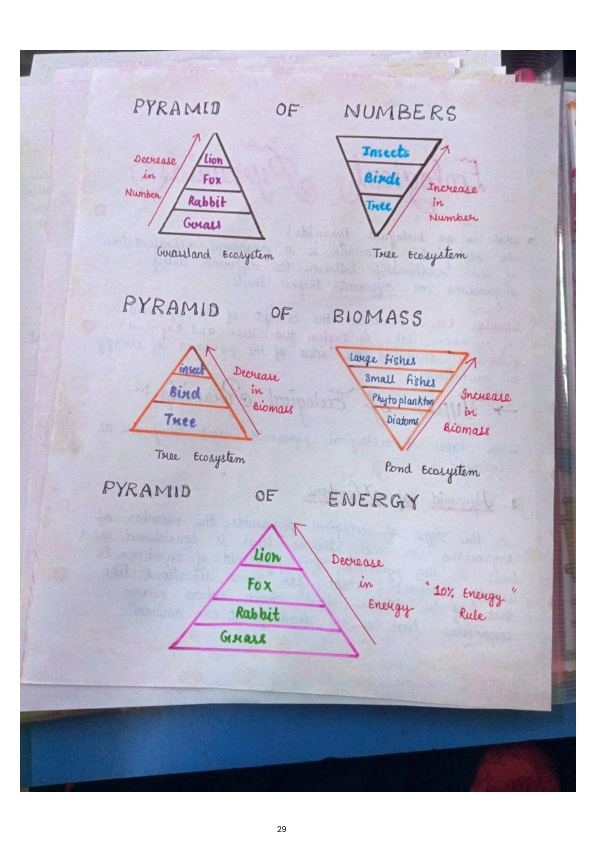 PYRAMID OF NUMBERS
Decrease
in
Number
Lion
Fox
Rabbit
Grass
Grassland Ecosystem
Insects
Birds
Tree
Increase
in
Number
Tree Ecosystem
PYRAMID OF BIOMASS
insect
Bird
Tree
Decrease
in
Biomass
Tree Ecosystem
Large fishes
Small fishes
Phytoplankton
Diatoms
Increase
in
Biomass
Pond Ecosystem
PYRAMID OF ENERGY
Lion
Fox
Rabbit
Grass
Decrease
in
Energy
"10% Energy"
Rule
29